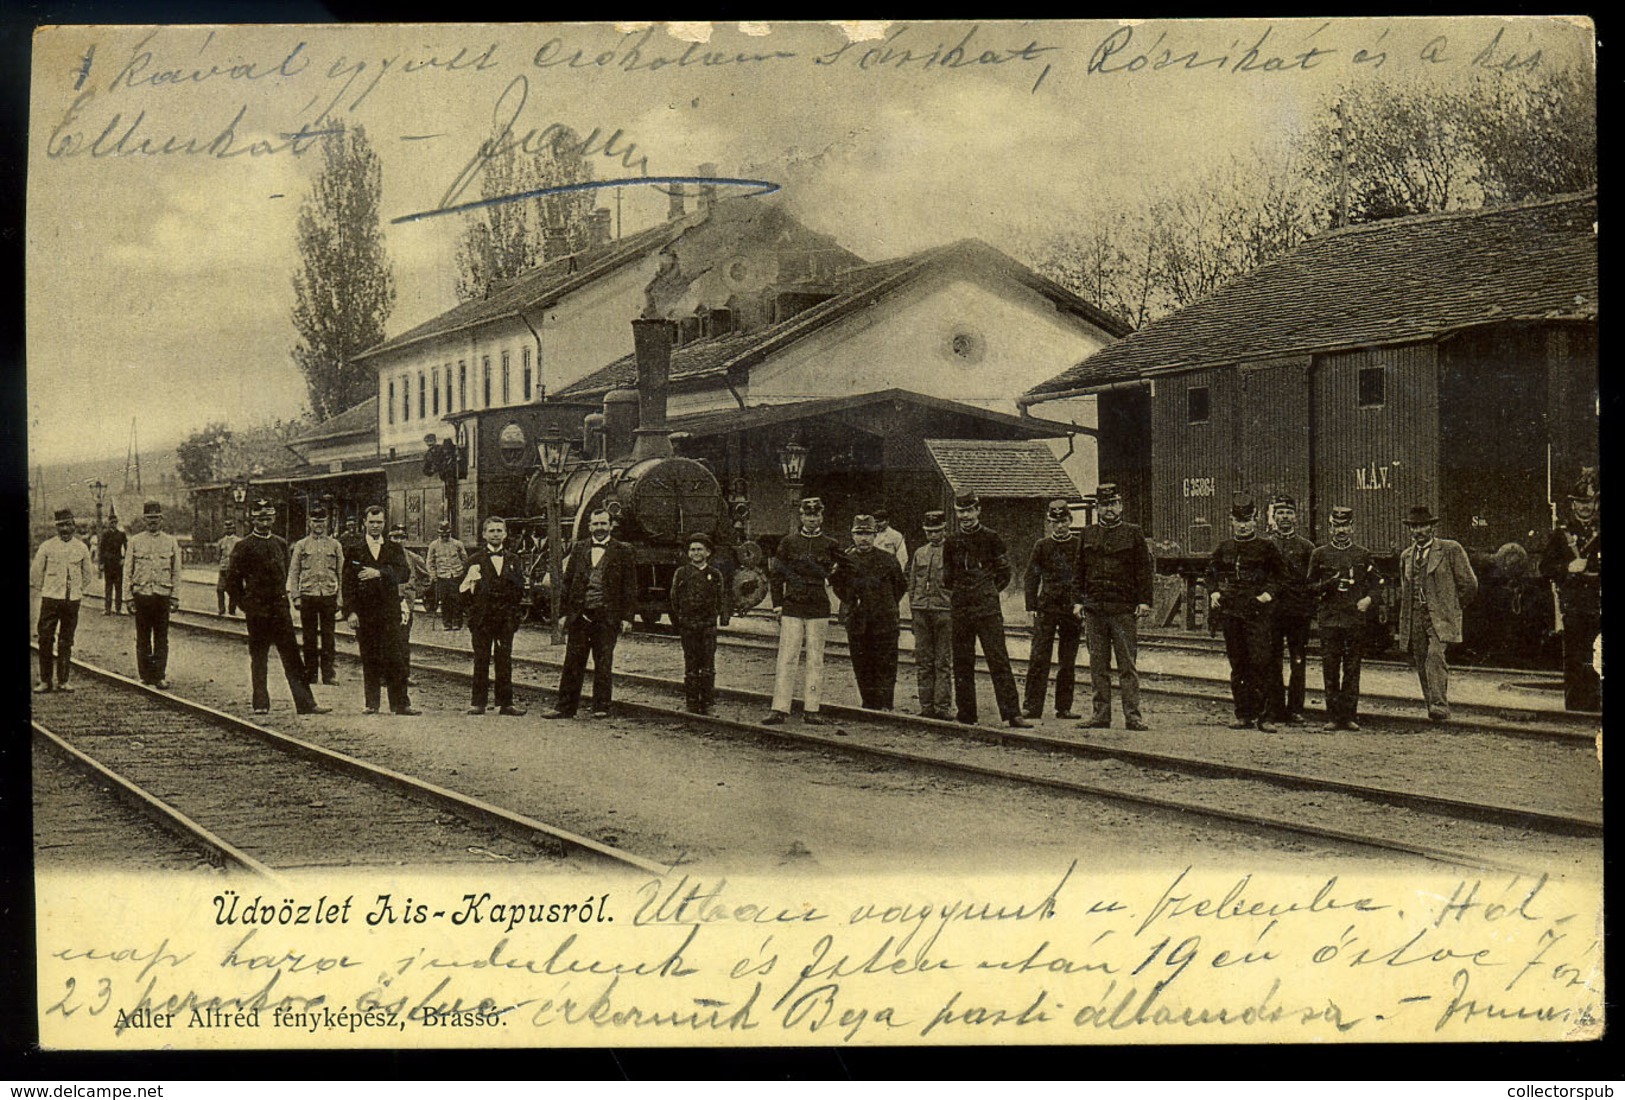 kával együtt csókolom Sárikát, Rózsikát és a kis
Elluskát –
G 35864
M.Á.V.
Üdvözlet Kis-Kapusról. Útban vagyunk n. szebenbe. Hól-
nap haza indulunk és Isten után 19 én este 7 óra
23 perckor érkezünk Beja pasti állomásra. –
Adler Alfréd fényképész, Brassó.
www.delcampe.net
collectorspub